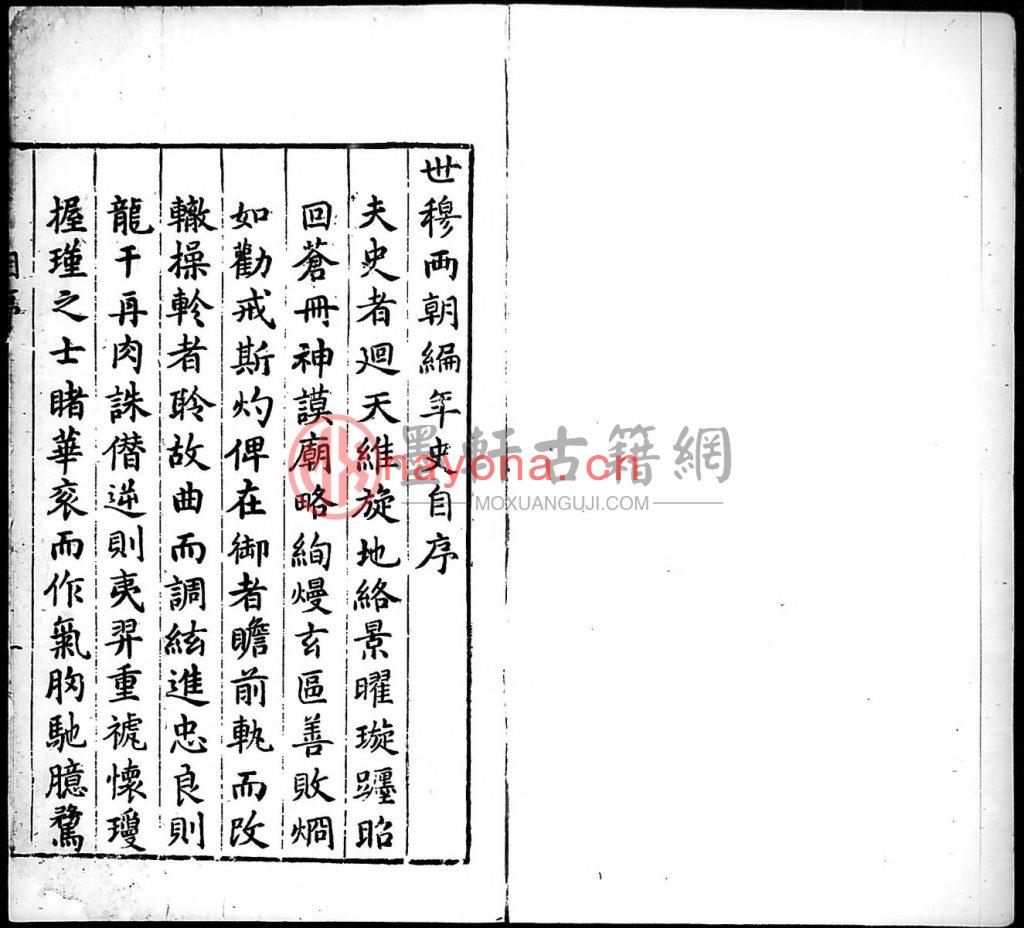 世穆兩朝編年史自序
夫史者廻天維旋地絡景曜璇躔昭
回蒼冊神謨廟略絢熳玄區善敗烱
如勸戒斯灼俾在御者瞻前軌而改
轍操軫者聆故曲而調絃進忠良則
龍干再肉誅僭逆則夷羿重禠懷瓊
握瑾之士睹華衮而作氣胸馳臆騖
自序
一
墨軒古籍網
nayona.cn
MOXUANGUJI.COM